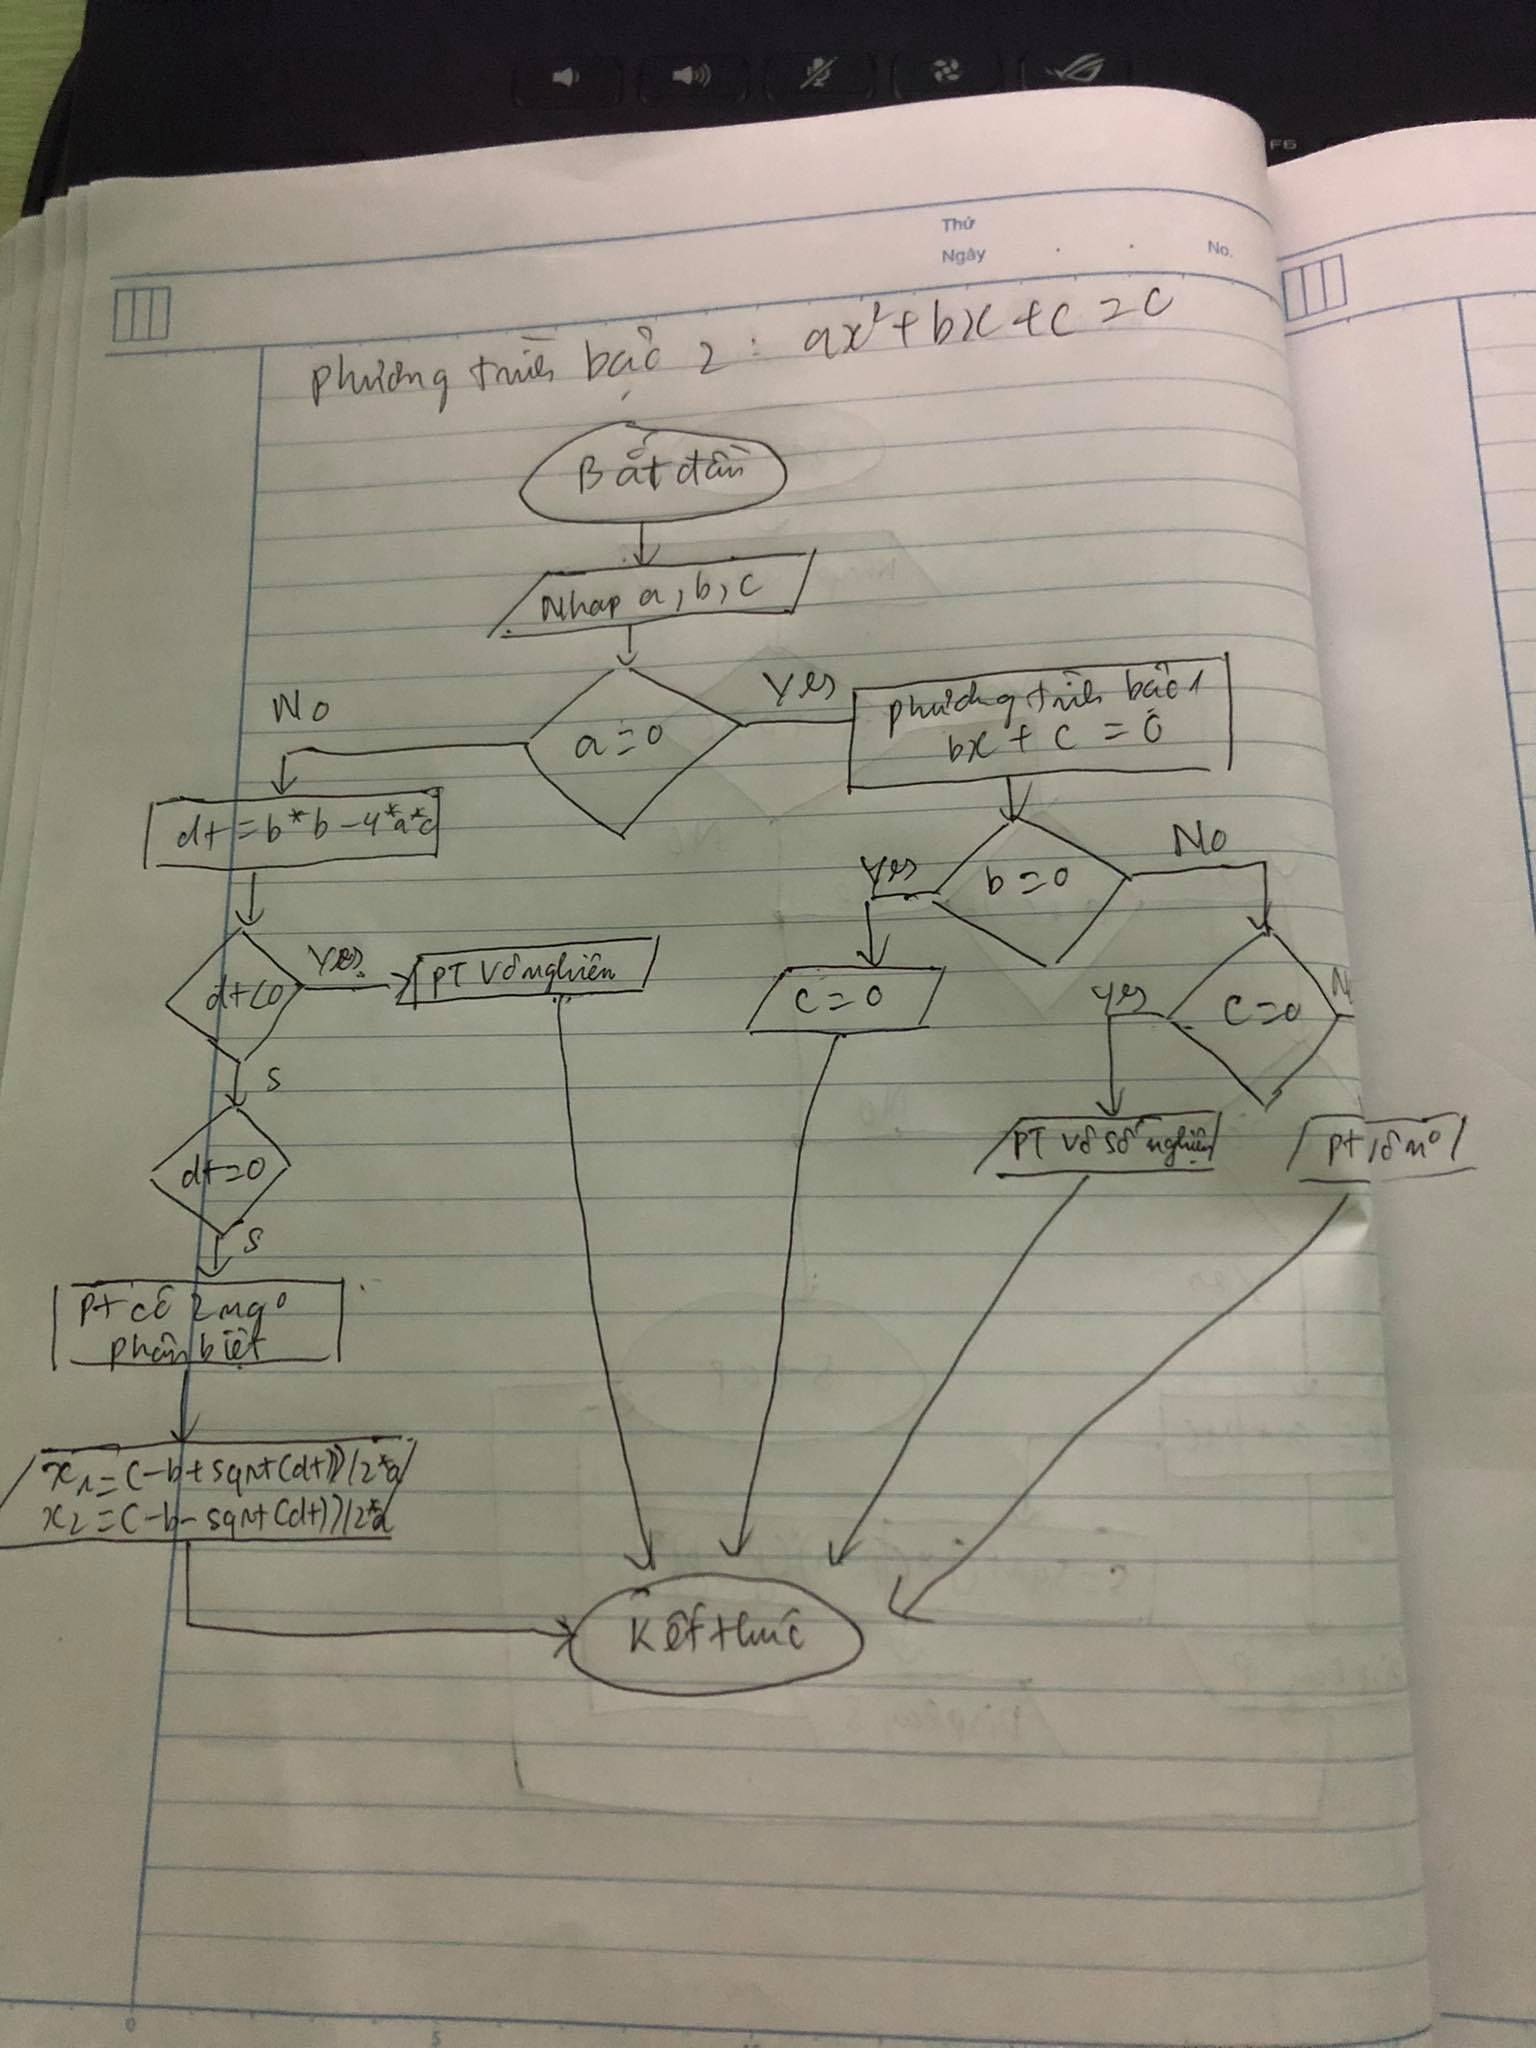 Thứ
Ngày
No.
F6
phương trình bậc 2 : ax²+bx+c=c
Bắt đầu
Nhap a, b, c
a=0
No
Yes
phương trình bậc 1
bx + c = 0
dt = b*b-4*a*c
b=0
Yes
No
dt<0
Yes
PT Vô nghiên
c=0
c=0
yes
N
S
dt=0
PT Vô số nghiện
S
Pt có 2 ng⁰
phân biệt
x1=(-b+sqrt(dt))/2*a
x2=(-b-sqrt(dt))/2*a
Kết thúc
0
5